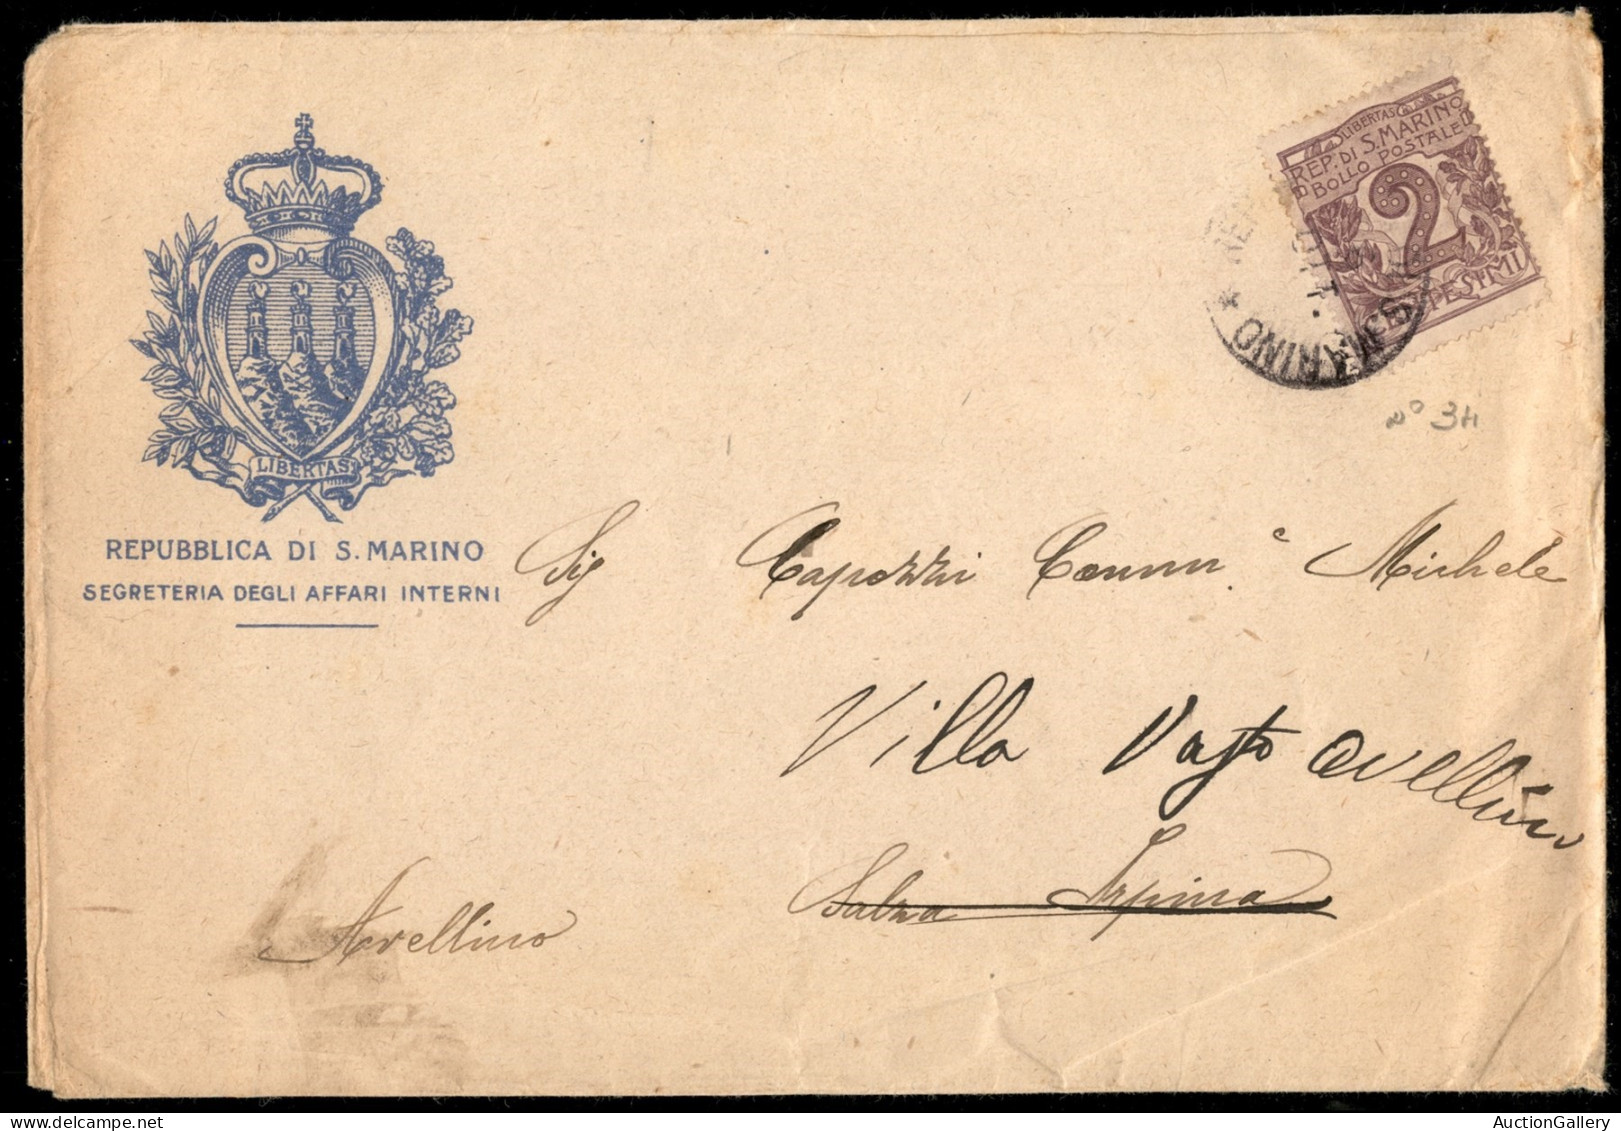 LIBERTAS
REP. DI S. MARINO
BOLLO POSTALE
2
CENTESIMI
REP
S. MARINO
N° 34
LIBERTAS
REPUBBLICA DI S. MARINO
SEGRETERIA DEGLI AFFARI INTERNI
Sig Capozzi Comm.e Michele
Villa Vasto Avellino
Salza Irpina
Avellino
AuctionGallery